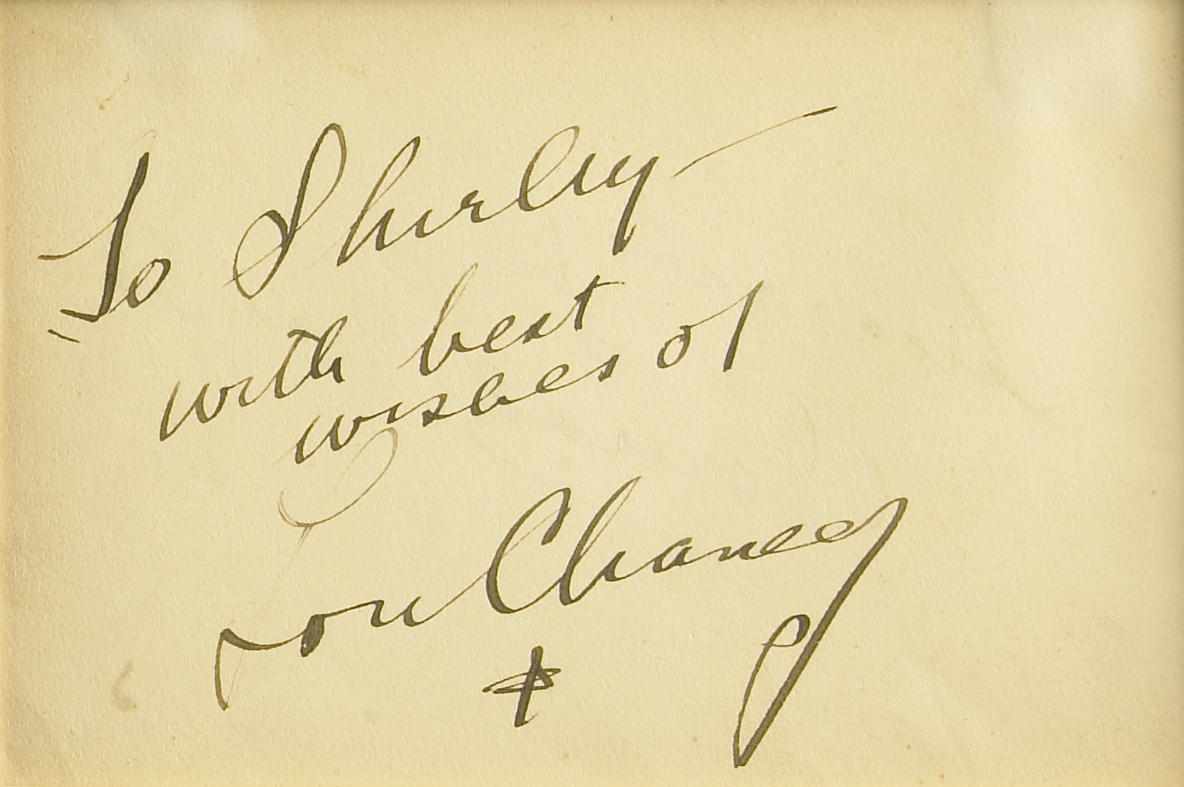 To Shirley —
with best
wishes of
Lon Chaney